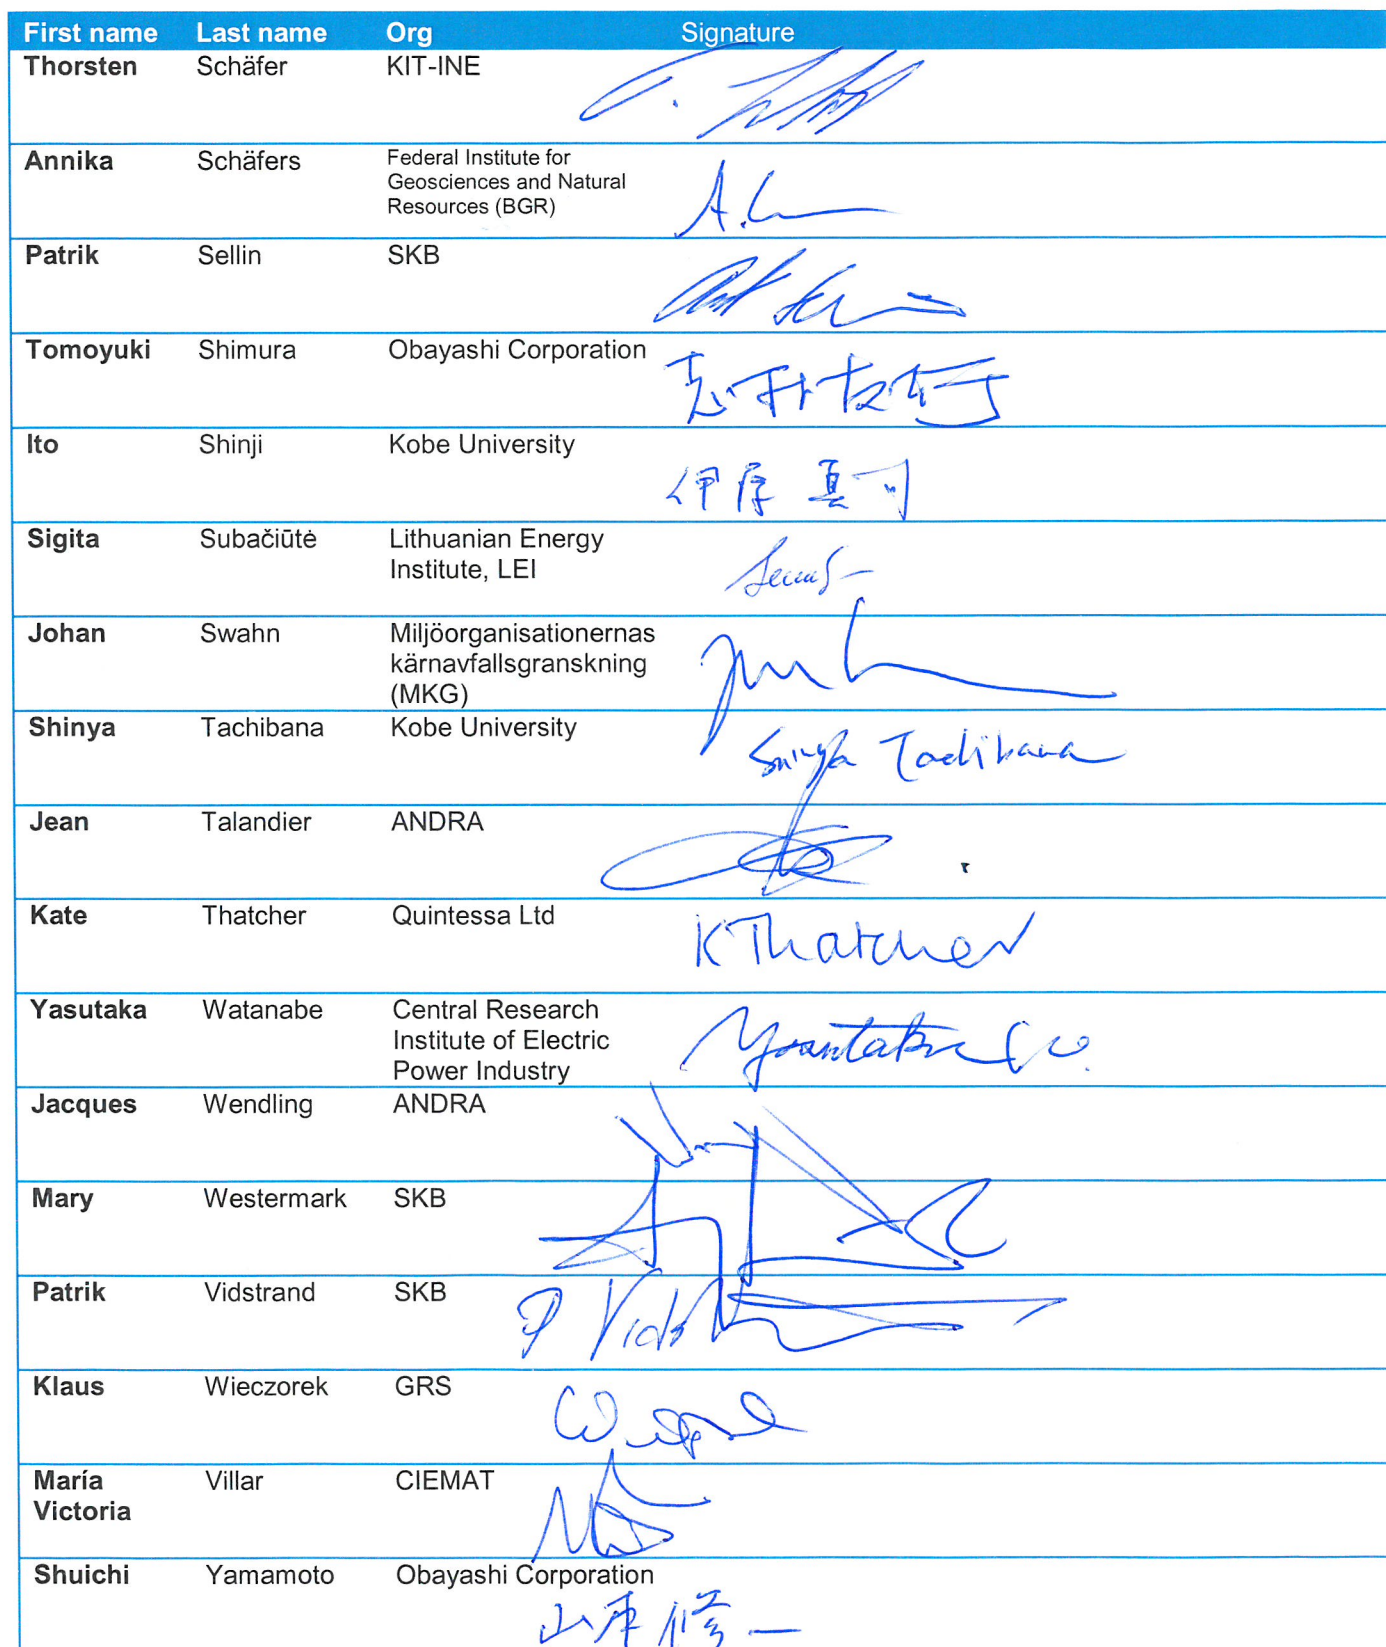 First name Last name Org Signature
Thorsten Schäfer KIT-INE
Annika Schäfers Federal Institute for
Geosciences and Natural
Resources (BGR)
Patrik Sellin SKB
Tomoyuki Shimura Obayashi Corporation
志村友行
Ito Shinji Kobe University
伊藤 真司
Sigita Subačiūtė Lithuanian Energy
Institute, LEI
Johan Swahn Miljöorganisationernas
kärnavfallsgranskning
(MKG)
Shinya Tachibana Kobe University
Shinya Tachibana
Jean Talandier ANDRA
Kate Thatcher Quintessa Ltd
K Thatcher
Yasutaka Watanabe Central Research
Institute of Electric
Power Industry
Yasutaka W.
Jacques Wendling ANDRA
Mary Westermark SKB
Patrik Vidstrand SKB
P Vids
Klaus Wieczorek GRS
María Villar CIEMAT
Victoria
Shuichi Yamamoto Obayashi Corporation
山本修一